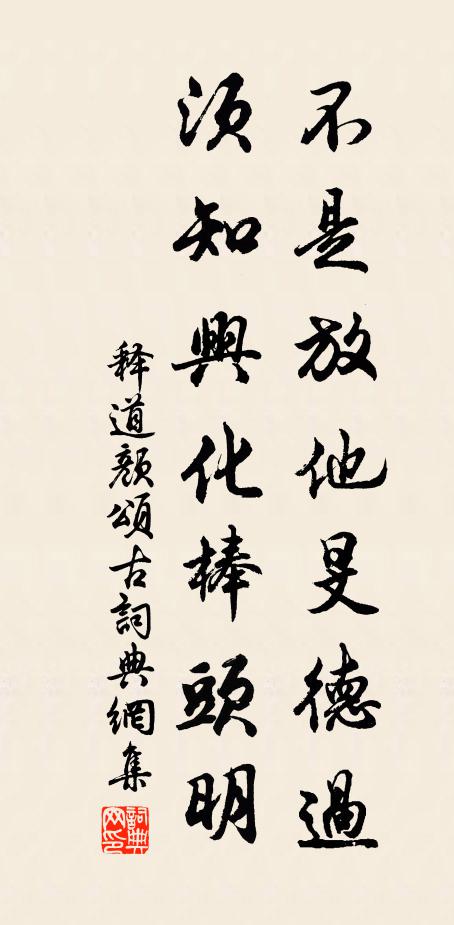 不是放他旻德過
須知興化棒頭明
释道顏頌古詞典網集
詞典网印